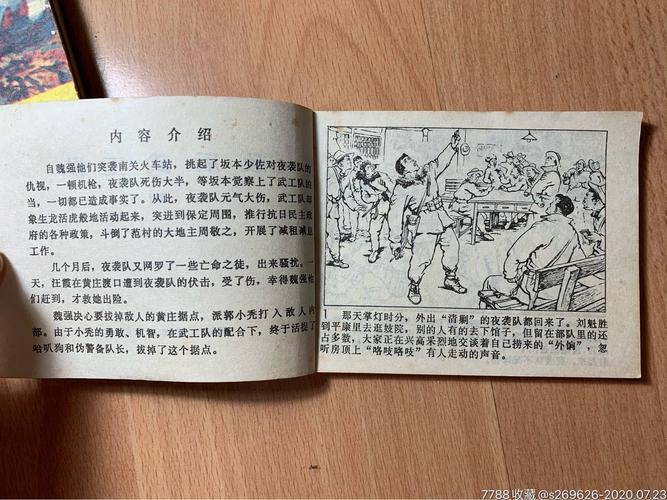 内容介绍
自魏强他们突袭南关火车站，挑起了坂本少佐对夜袭队的
仇视，一顿机枪，夜袭队死伤大半，等坂本觉察上了武工队的
当，一切都已造成事实了。从此，夜袭队元气大伤，武工队却
象生龙活虎般地活动起来，突进到保定周围，推行抗日民主政
府的各种政策，斗倒了范村的大地主周敬之，开展了减租减息
工作。
几个月后，夜袭队又网罗了一些亡命之徒，出来骚扰。一
天，汪霞在黄庄渡口遭到夜袭队的伏击，受了伤，幸得魏强他
们赶到，才救她出险。
魏强决心要拔掉敌人的黄庄据点，派郭小秃打入敌人内
部。由于小秃的勇敢、机智，在武工队的配合下，终于活捉了
哈叭狗和伪警备队长，拔掉了这个据点。
1 那天掌灯时分，外出“清剿”的夜袭队都回来了。刘魁胜
到平康里去逛妓院，别的人有的去下馆子，但留在部队里的还
占多数，大家正在兴高采烈地交谈着自己捞来的“外饷”，忽
听房顶上“咯吱咯吱”有人走动的声音。
7788收藏@s269626-2020.07.23